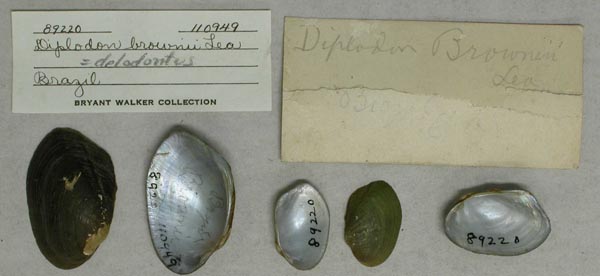 89220 110949
Diplodon brownii Lea
= delodontus
Brazil
BRYANT WALKER COLLECTION
Diplodon Brownii
Lea
89220
110949
89220
89220